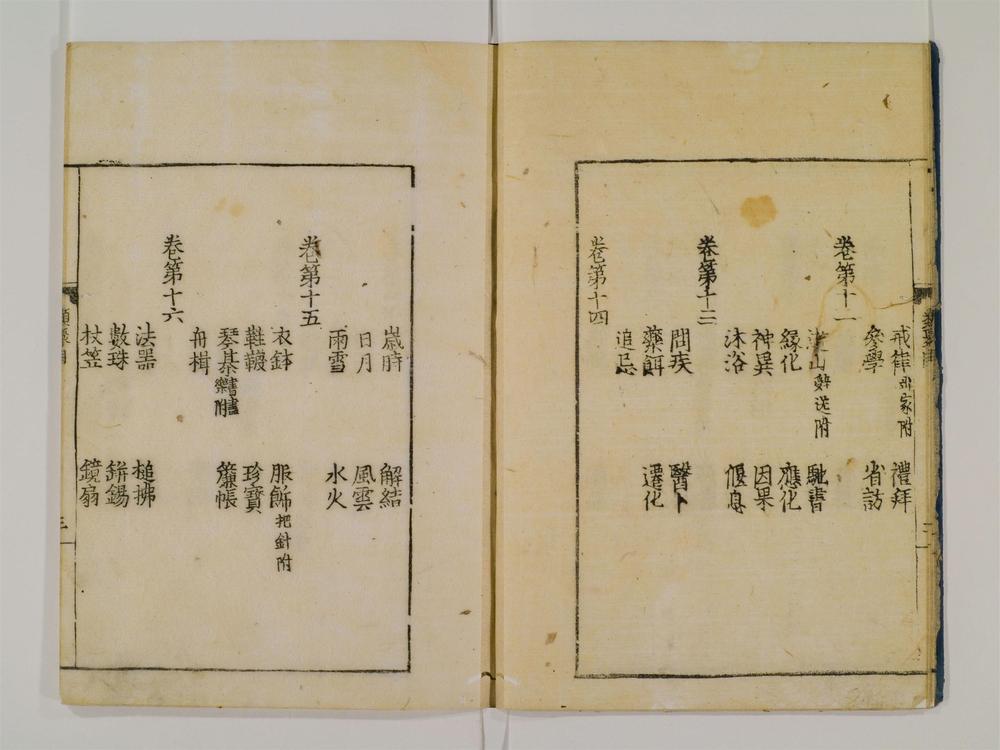 戒律出家附 禮拜
參學 省訪
卷第十二
山辭送附 馳書
緣化 應化
神異 因果
沐浴 偃息
卷第十三
問疾 醫卜
藥餌 遷化
追忌
卷第十四
歲時 解結
日月 風雲
雨雪 水火
卷第十五
衣鉢 服飾把針附
鞋韈 珍寶
琴棊書畫附 簾帳
舟楫
卷第十六
法器 槌拂
數珠 缾錫
杖笠 鏡扇
三